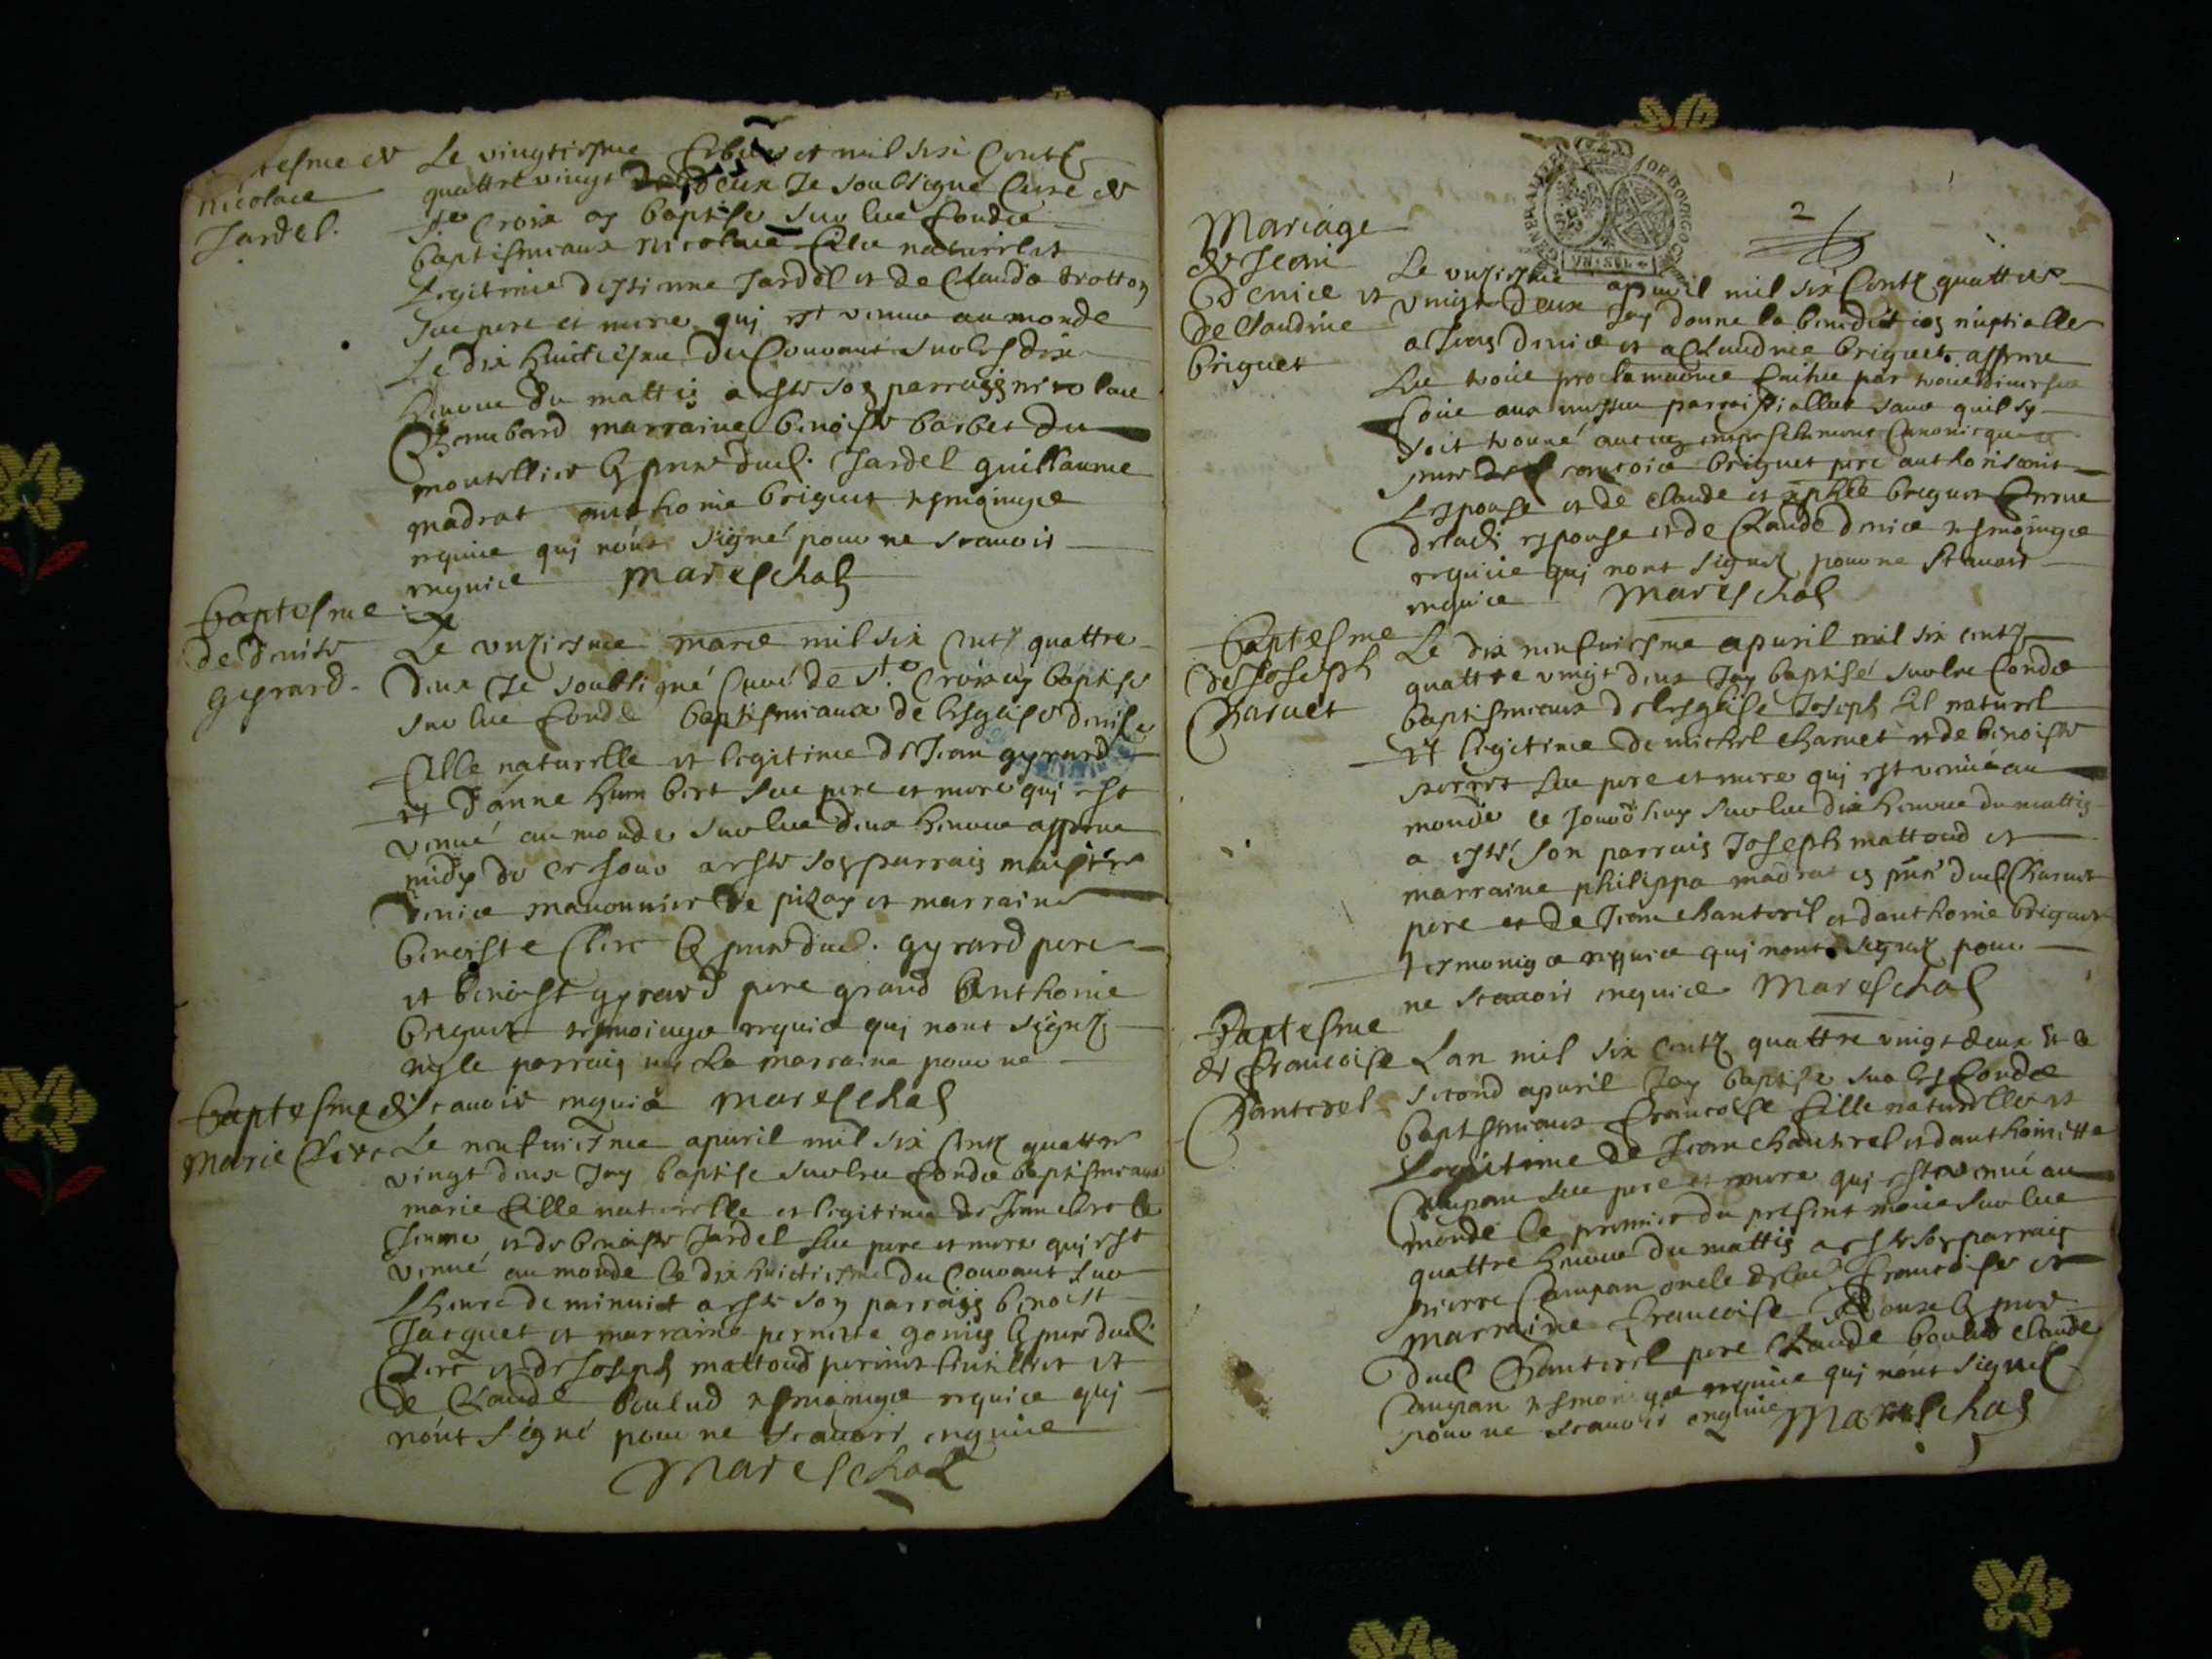 tesme de
nicolace
Jardel.
Le vingtiesme mil six Centz
quattre vingt deux Je soubsigné Curé de
Ste Croix ay baptise sur les fondz
baptismaux nicolace fille naturelle et
Legitime destienne Jardel et de Clauda trotton
ses pere et mere qui est venue au monde
Le dix huictiesme du Courant sur les dix
heures du mattin a esté son parrain nicolace
marraine benoiste barbet du
montellier En pnce dud. Jardel guillaume
madrat anthoine briguet tesmoings
requis qui nont signé pour ne scavoir
enquis mareschal
baptesme
de denise
gyrard.
Le unziesme mars mil six Centz quattre
deux Je soubsigné Curé de Ste Croix ay baptise
sur les fondz baptismaux de lesglise denise
fille naturelle et legitime de Jean gyrard
et danne humbert ses pere et mere qui est
venue au monde sur les deux heures appres
midy de ce jour a esté son parrain
denice de pizay et marraine
benoiste Clere En pnce dud. gyrard pere
et benoist gyrard pere grand Anthoine
briguet tesmoings requis qui nont signez
ny le parrain ny la marraine pour ne
scavoir enquis mareschal
baptesme de
marie Clere
Le neufviesme apuril mil six Centz quattre
vingt deux Jay baptise sur les fondz baptismaux
marie fille naturelle et legitime de Jean clere le
Jeune et de benoiste Jardel ses pere et mere qui est
venue au monde le dix huictiesme du Courant sur
Lheure de minuict a esté son parrain benoist
Jacquet et marraine pernette gonin En pnce dud.
Clere et de Joseph mattoud et
de Claude boulud tesmoings requis qui
nont signé pour ne scavoir enquis
mareschal
GENERALITE
DE BOVRGOGNE
VN SOL
2
Mariage
de Jean
Denice et
de Claudine
briguet
Le unziesme apuril mil six Centz quattre
vingt deux Jay donne la benediction nuptialle
a Jean denice et a Claudine briguet appres
Les trois proclamations faites par trois diverses
fois aux messes parroissialles sans quil sy
soit trouué aucung empeschement Canonicque
pnce de francois briguet pere authorisant
Lespouse et de Claude et briguet freres
de lad. espouse et de Claude denice tesmoings
requis qui nont signez pour ne scavoir
enquis Mareschal
baptesme
de Joseph
Charuet
Le dix neufuiesme apuril mil six centz
quattre vingt deux Jay baptisé sur les fondz
baptismaux de lesglise Joseph fil naturel
et legitime de michel charuet et de benoiste
perret ses pere et mere qui est venue au
monde le Jourdhuy sur les dix heures du mattin
a esté son parrain Joseph mattoud et
marraine philippa madrat en pnce dud Charuet
pere et de Jean chanterel et danthoine briguet
tesmoings requis qui nont signez pour
ne scavoir enquis Mareschal
baptesme
de francoise
Chanterel
Lan mil six centz quattre vingt deux et le
second apuril Jay baptise sur les fondz
baptismaux francoise fille naturelle et
Legitime de Jean chanterel et danthoinette
Campan ses pere et mere qui est venue au
monde le premier du present mois sur les
quattre heures du mattin a esté son parrain
pierre Campan oncle de lad. francoise et
marraine francoise En pnce
dud Chanterel pere Claude boulud claude
Campan tesmoings requis qui nont signez
pour ne scavoir enquis Mareschal